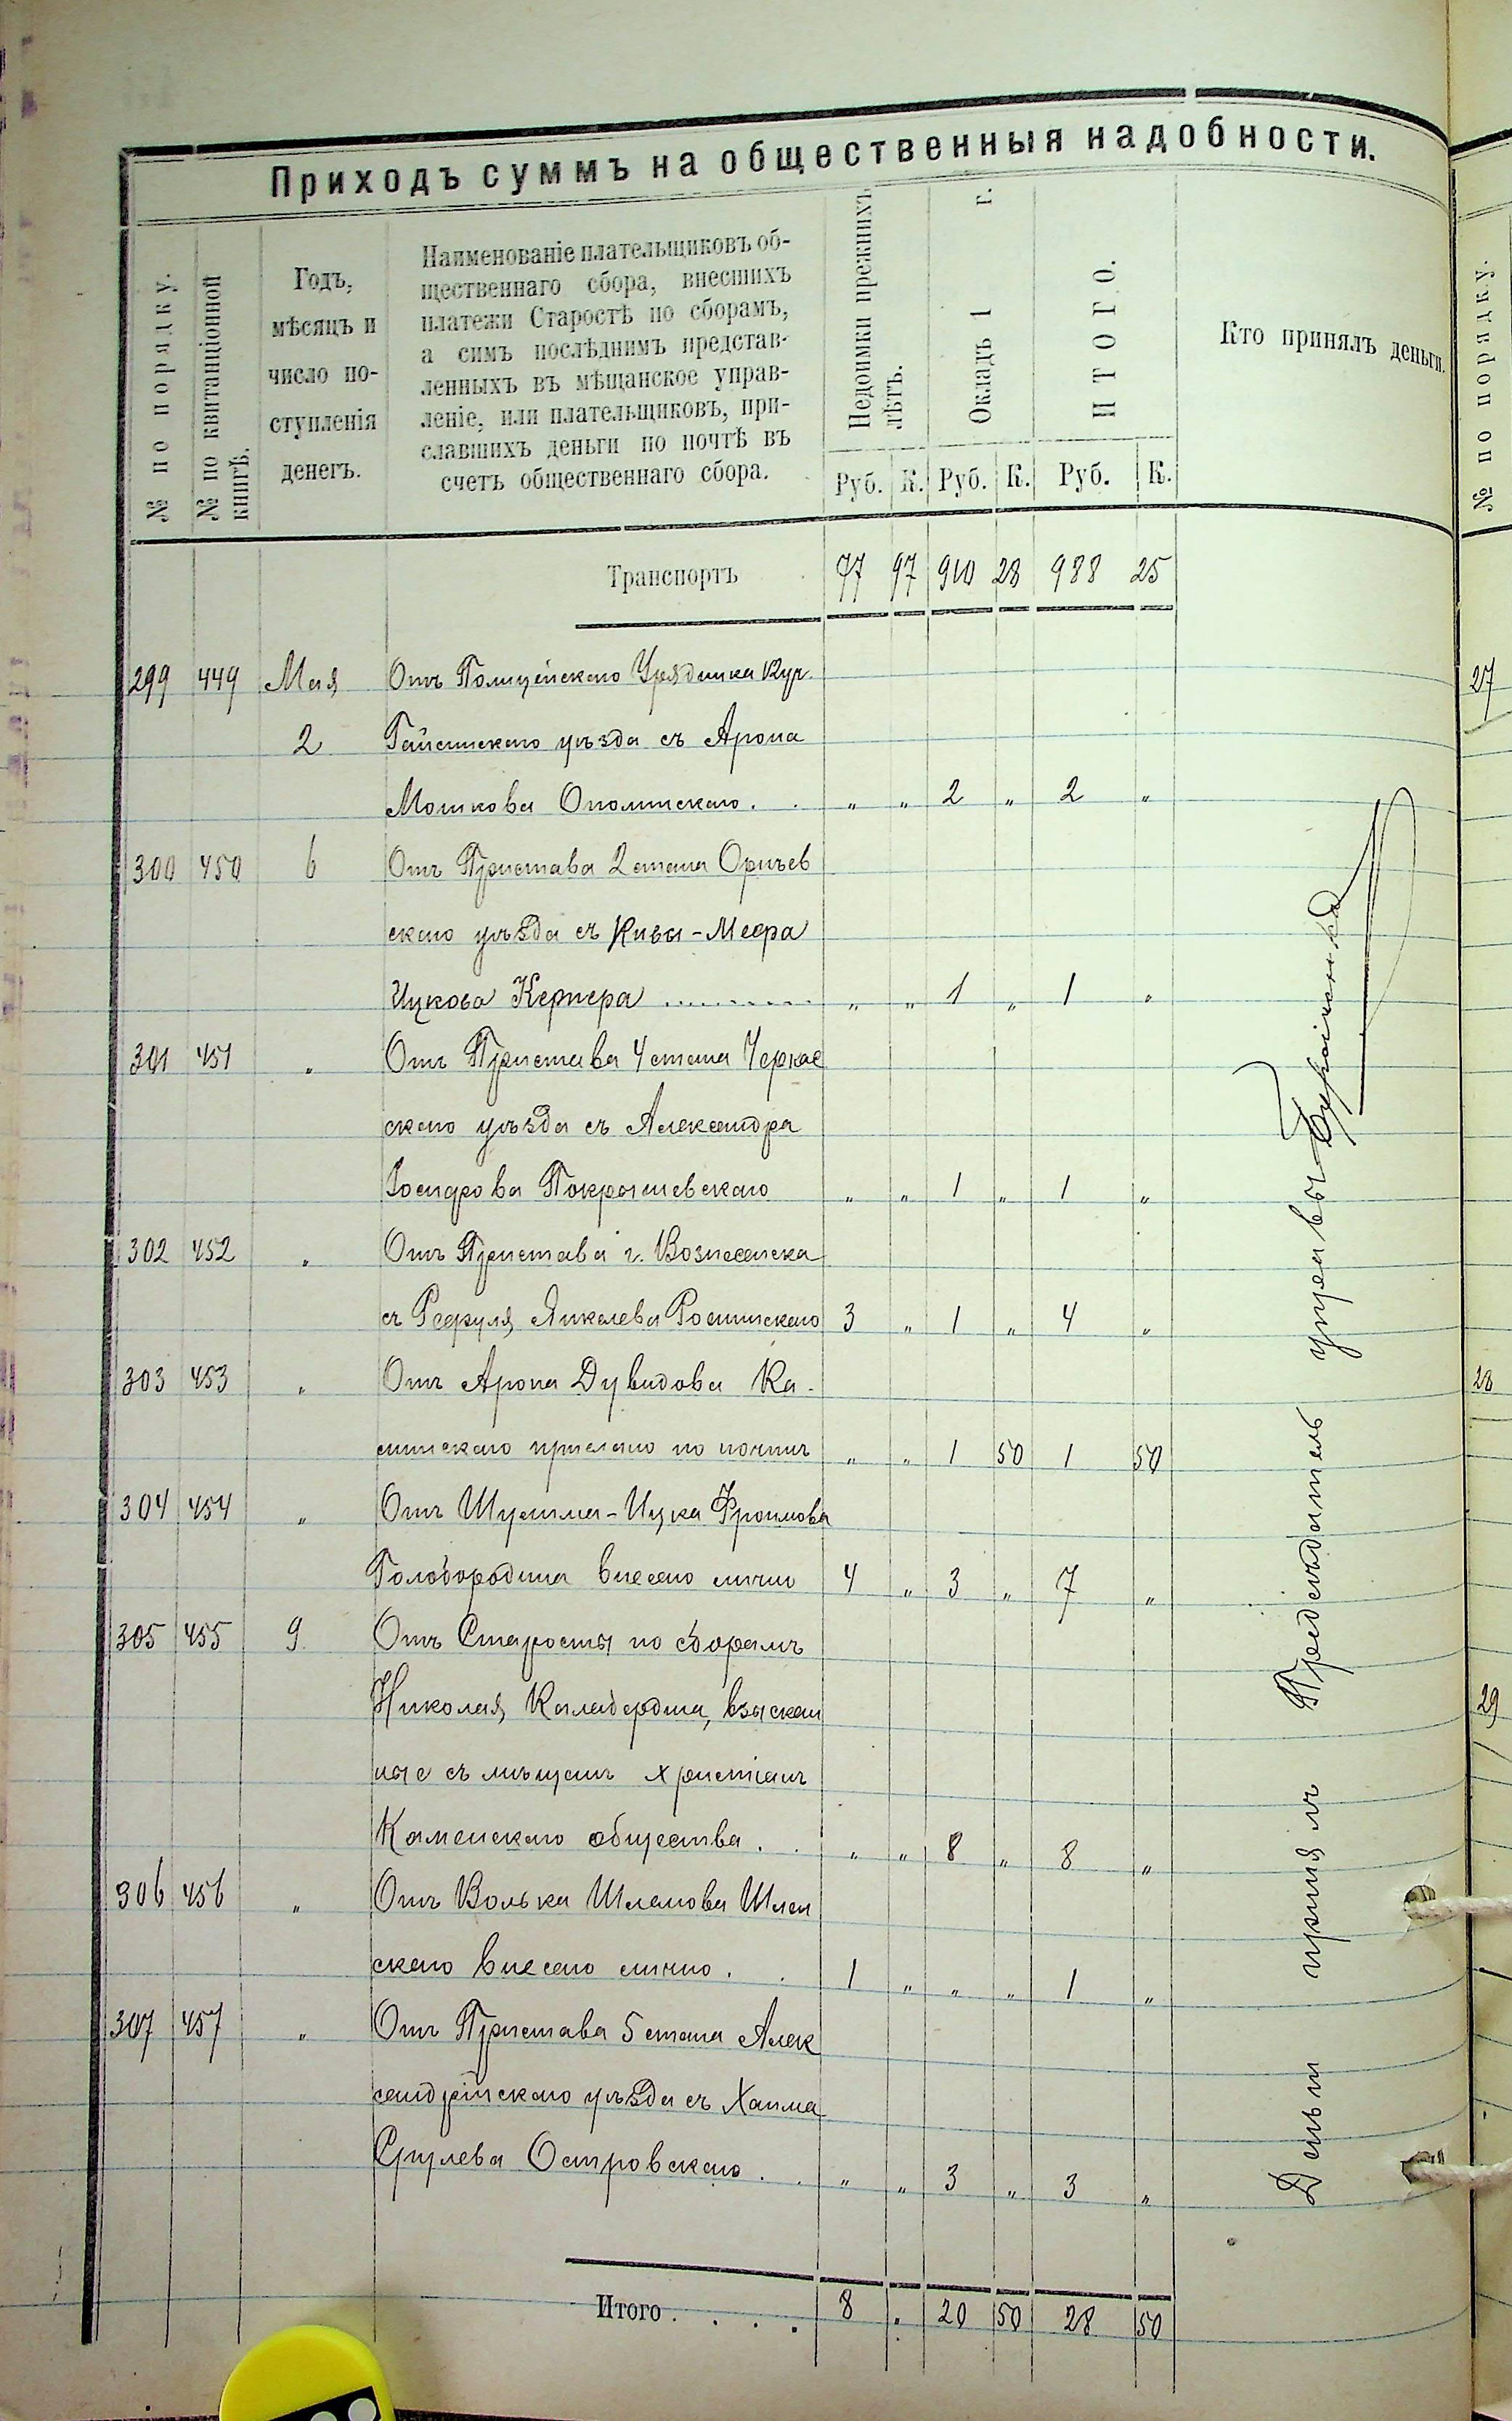 Приходъ суммъ на общественныя надобности.
№ по порядку.
№ по квитанціонной
книгѣ.
Годъ,
мѣсяцъ и
число по-
ступленія
денегъ.
Наименованіе плательщиковъ об-
щественнаго сбора, внесшихъ
платежи Старостѣ по сборамъ,
а симъ послѣднимъ представ-
ленныхъ въ мѣщанское управ-
леніе, или плательщиковъ, при-
славшихъ деньги по почтѣ въ
счетъ общественнаго сбора.
Недоимки прежнихъ
лѣтъ.
Окладъ 1 г.
ИТОГО.
Кто принялъ деньги.
Руб. К. Руб. К. Руб. К.
Транспортъ 77 97 910 28 988 25
299 449 Мая Отъ Полицейскаго Урядника
2 Гайсинскаго уѣзда съ Арона
Мошкова Ополинскаго . . „ „ 2 „ 2 „
300 450 6 Отъ Пристава 2 стана Оргѣев
скаго уѣзда съ Кивы-Меера
Ицкова Кернера „ „ 1 „ 1 „
301 451 „ Отъ Пристава 4 стана Черкас
скаго уѣзда съ Александра
Покрашевскаго „ „ 1 „ 1 „
302 452 „ Отъ Пристава г. Вознесенска
съ Рефуля Янкелева Росинскаго 3 „ 1 „ 4 „
303 453 „ Отъ Арона Дувидова Ка-
синскаго прислано по почтѣ „ „ 1 50 1 50
304 454 „ Отъ Шулима-Ицка Фроимова
Голобородина внесено лично 4 „ 3 „ 7 „
305 455 9 Отъ Старосты по сборамъ
Николая Калабердина, взыскан
ные съ мѣщанъ христіанъ
Каменскаго общества . . „ „ 8 „ 8 „
306 456 „ Отъ Волька Шлемова Шпол
скаго внесено лично . . 1 „ „ „ 1 „
307 457 „ Отъ Пристава 5 стана Алек
сандрійскаго уѣзда съ Хаима
Срулева Островскаго . . „ „ 3 „ 3 „
Итого . . . . 8 „ 20 50 28 50
Деньги принялъ Предсѣдатель управы
№ по порядку.
27
28
29